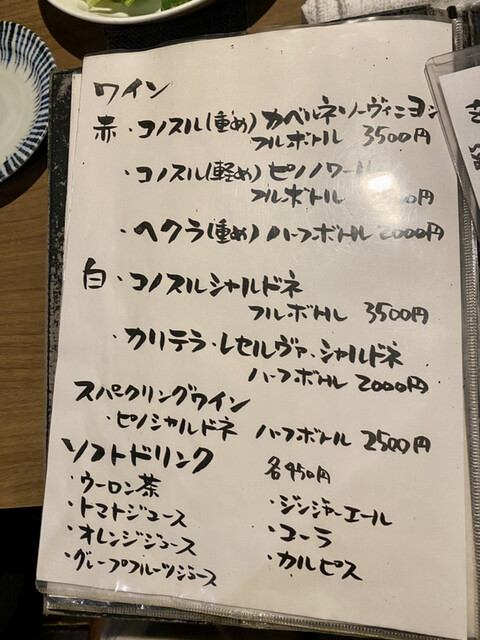 ワイン
赤・コノスル(重め)カベルネソーヴィニヨン
フルボトル 3500円
・コノスル(軽め)ピノノワール
フルボトル 円
・ヘクラ(重め)ハーフボトル 2000円
白・コノスルシャルドネ
フルボトル 3500円
・カリテラ・レセルヴァ・シャルドネ
ハーフボトル 2000円
スパークリングワイン
・ピノシャルドネ ハーフボトル 2500円
ソフトドリンク 各450円
・ウーロン茶
・トマトジュース
・オレンジジュース
・グレープフルーツジュース
・ジンジャーエール
・コーラ
・カルピス